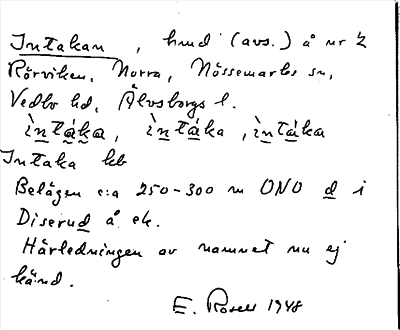 Intakan, hmd (avs.) å nr 2
Rörviken, Norra, Nössemarks sn,
Vedbo hd, Älvsborgs l.
ìntáka, ìntáka, ìntáka
Intaka lsb
Belägen c:a 250-300 m ONO d i
Diserud å ek.
Härledningen av namnet nu ej
känd.
E. Rosell 1948